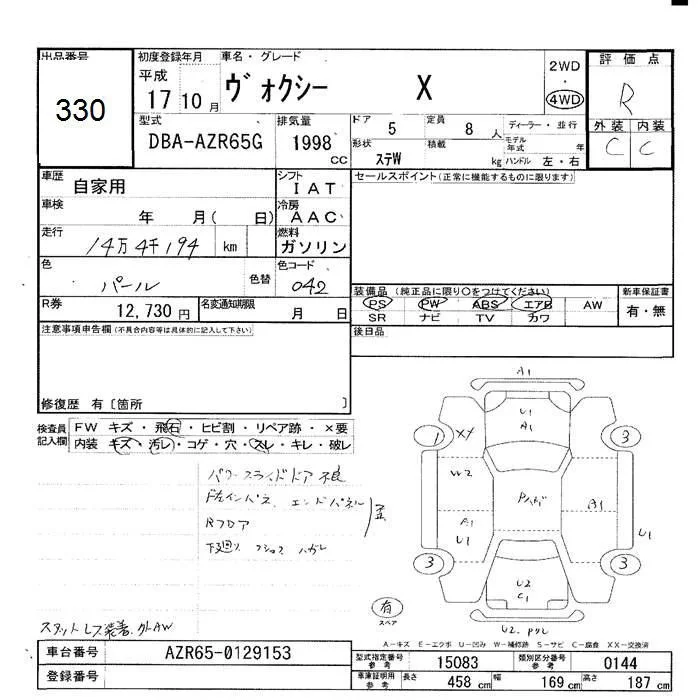 出品番号
330
初度登録年月
平成
17 10月
車名・グレード
ヴォクシー X
2WD
・
4WD
評価点
R
外装 内装
C C
型式
DBA-AZR65G
排気量
1998
cc
ドア 5
定員 8 人
ディーラー・並行
形状
ステW
積載 kg
モデル年式 年
ハンドル 左・右
車歴
自家用
シフト
IAT
セールスポイント(正常に機能するものに限ります)
車検
年 月( 日)
冷房
AAC
走行
14万4千194 km
燃料
ガソリン
色
パール
色替
色コード
042
装備品(純正品に限り○をつけてください)
PS PW ABS エアB AW
SR ナビ TV カワ
新車保証書
有・無
R券
12,730円
名変通知期限
月 日
後日品
注意事項申告欄(不具合内容等は具体的に記入して下さい)
修復歴 有〔箇所 〕
検査員記入欄
FW キズ・飛石・ヒビ割・リペア跡・×要
内装 キズ・汚レ・コゲ・穴・スレ・キレ・破レ
パワースライドドア不良
Rフロア
下廻り
A1
U1
A1
1
XY
3
W2
A1
U1
B1
U1
3
3
U2
C1
有
スペア
U2
スタットレス装着 外AW
A-キズ E-エクボ U-凹み W-補修跡 S-サビ C-腐食 XX-交換済
車台番号
AZR65-0129153
登録番号
型式指定番号
参考
15083
類別区分番号
参考
0144
車庫証明用
参考
長さ 458 cm
幅 169 cm
高さ 187 cm